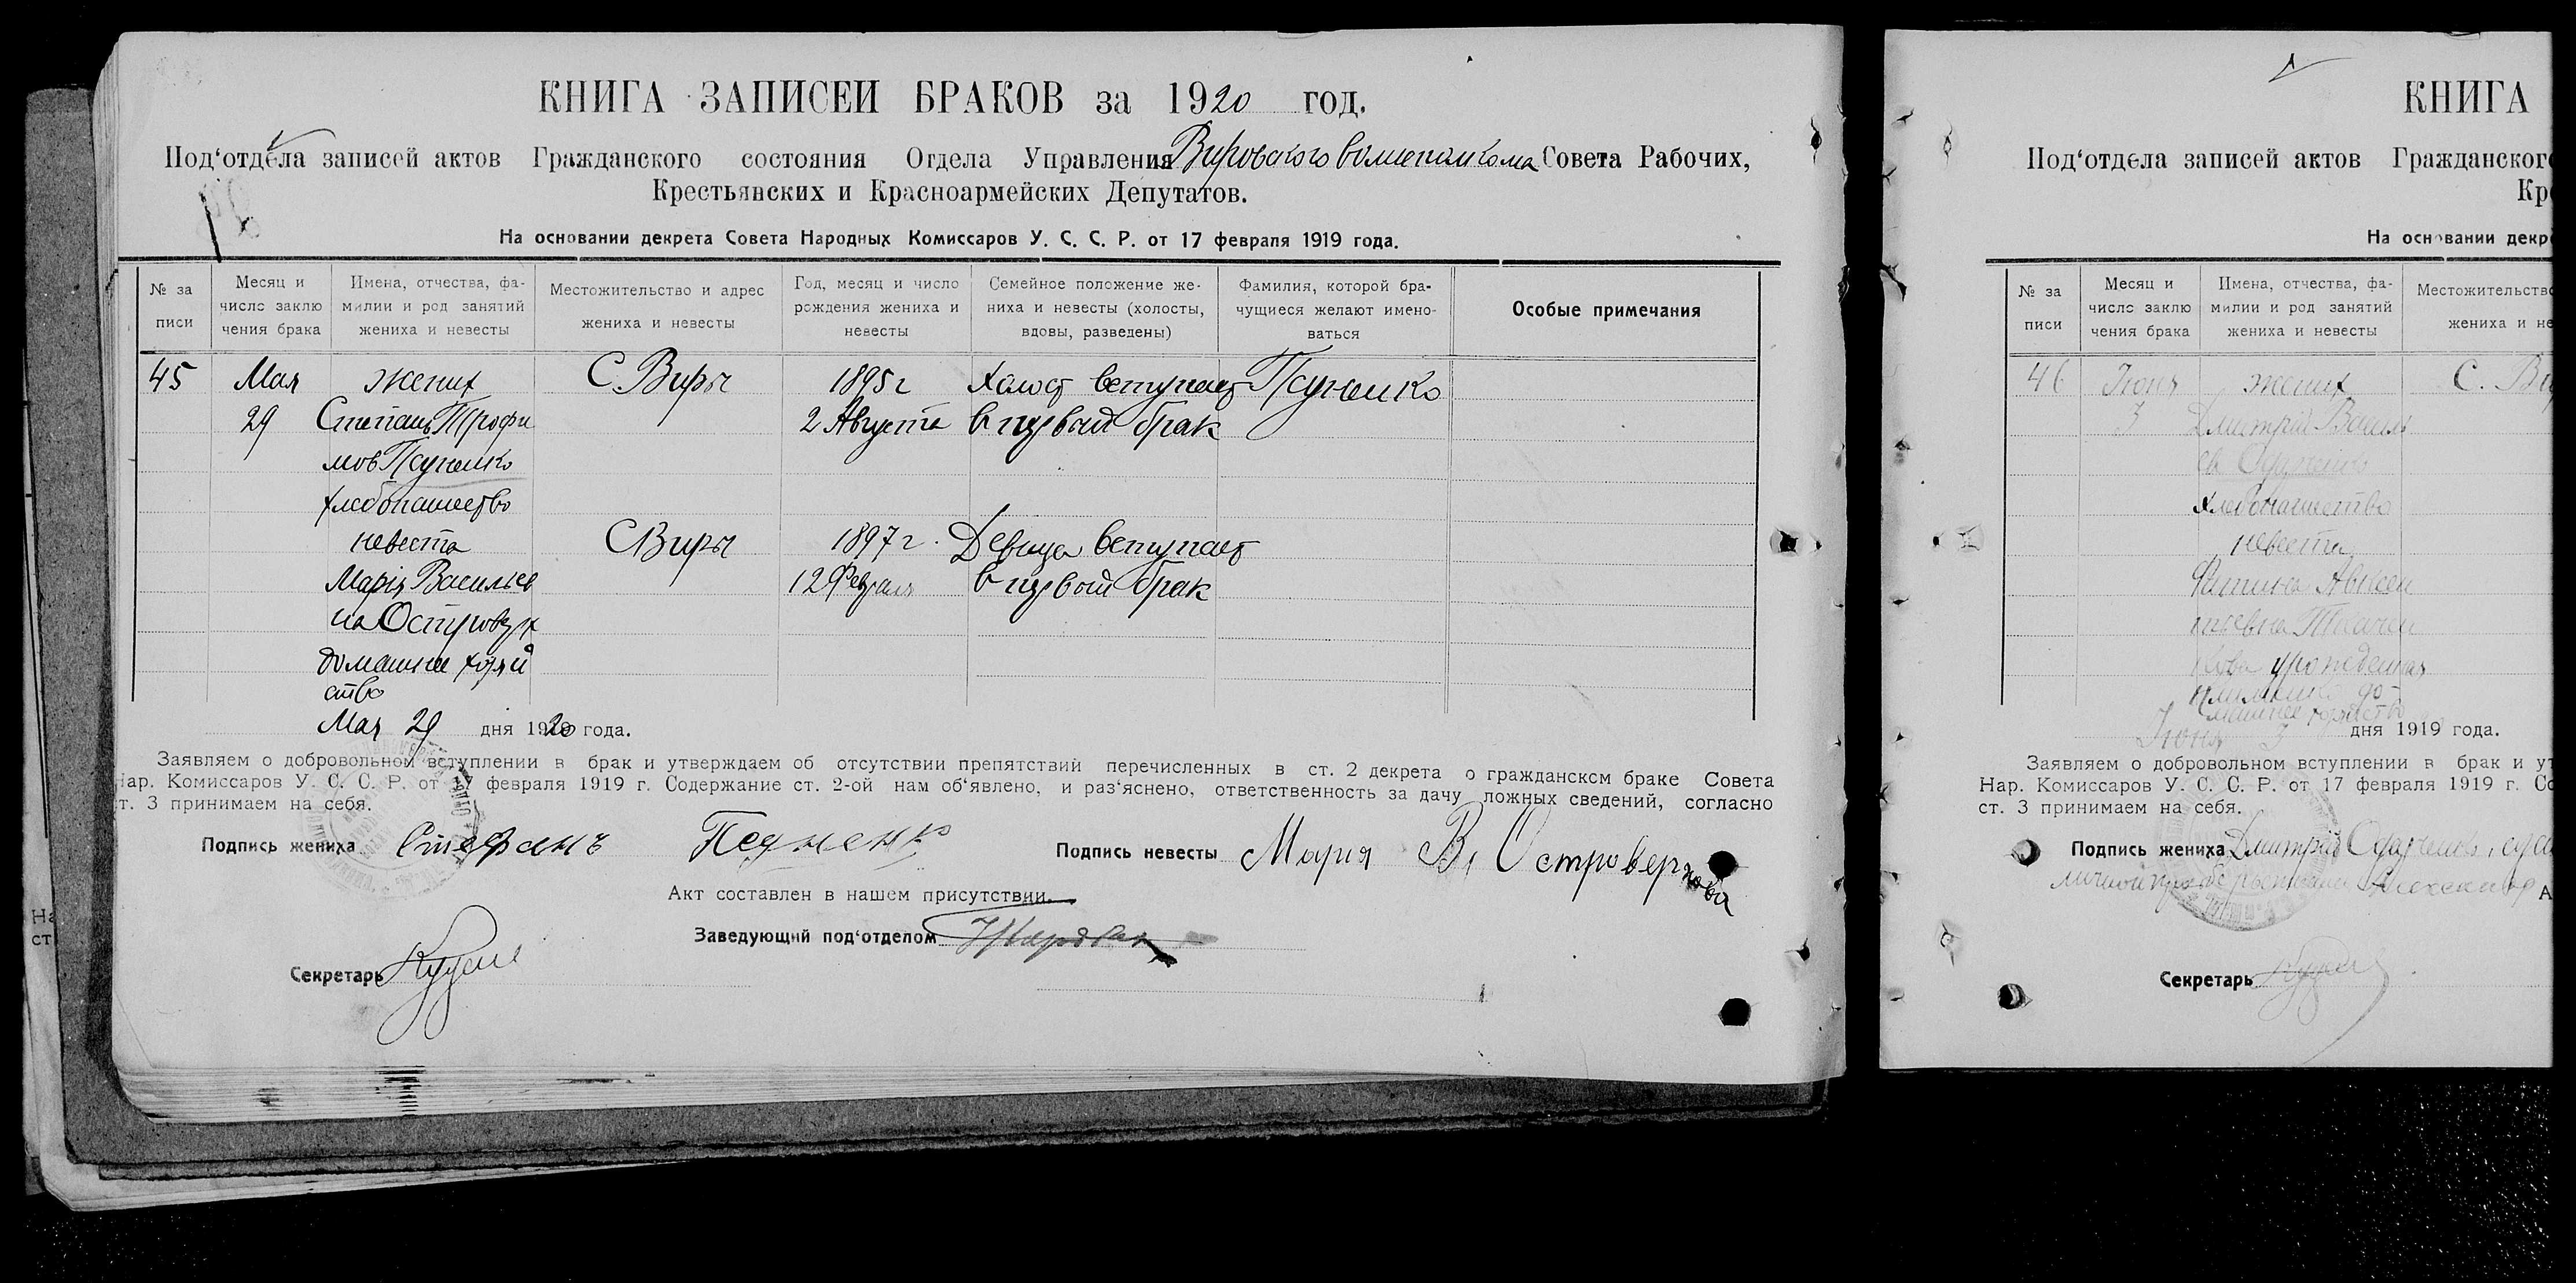 КНИГА ЗАПИСЕЙ БРАКОВ за 1920 год.
Под‘отдела записей актов Гражданского состояния Отдела Управления Вировского волисполкома Совета Рабочих,
Крестьянских и Красноармейских Депутатов.
На основании декрета Совета Народных Комиссаров У. С. С. Р. от 17 февраля 1919 года.
№ за писи
Месяц и число заклю чения брака
Имена, отчества, фа- милии и род занятий жениха и невесты
Местожительство и адрес жениха и невесты
Год, месяц и число рождения жениха и невесты
Семейное положение же- ниха и невесты (холосты, вдовы, разведены)
Фамилия, которой бра- чущиеся желают имено- ваться
Особые примечания
45 Мая жених С. Виры 1895 г Холост вступает
29 Степань Трофи 2 Августа в первый брак
мов
хлебопашество
невеста С Виры 1897 г. Девица вступает
Марія Васильев 12 Февраля в первый брак
на Островерх
домашнее хозяй
ство
Мая 29 дня 1920 года.
Заявляем о добровольном вступлении в брак и утверждаем об отсутствии препятствий перечисленных в ст. 2 декрета о гражданском браке Совета
Нар. Комиссаров У. С. С. Р. от 17 февраля 1919 г. Содержание ст. 2-ой нам об‘явлено, и раз‘яснено, ответственность за дачу ложных сведений, согласно
ст. 3 принимаем на себя.
Подпись жениха Стефанъ Подпись невесты Мария В. Островерхова
Акт составлен в нашем присутствии.
Заведующий под‘отделом
Секретарь
КНИГА
Под‘отдела записей актов Гражданского
Кре
На основании декре
№ за писи
Месяц и число заклю чения брака
Имена, отчества, фа- милии и род занятий жениха и невесты
Местожительство
жениха и не
46 Іюня жених С. Ви
3 Дмитрій Василь
ев
хлебопашество
невеста
Авксен
тьевна Ткачен
кова урожденная
до-
машнее хозяйство
Іюня 3 дня 1919 года.
Заявляем о добровольном вступлении в брак и ут
Нар. Комиссаров У. С. С. Р. от 17 февраля 1919 г. Со
ст. 3 принимаем на себя.
Подпись жениха Дмитрій
А
Секретарь
На
ст